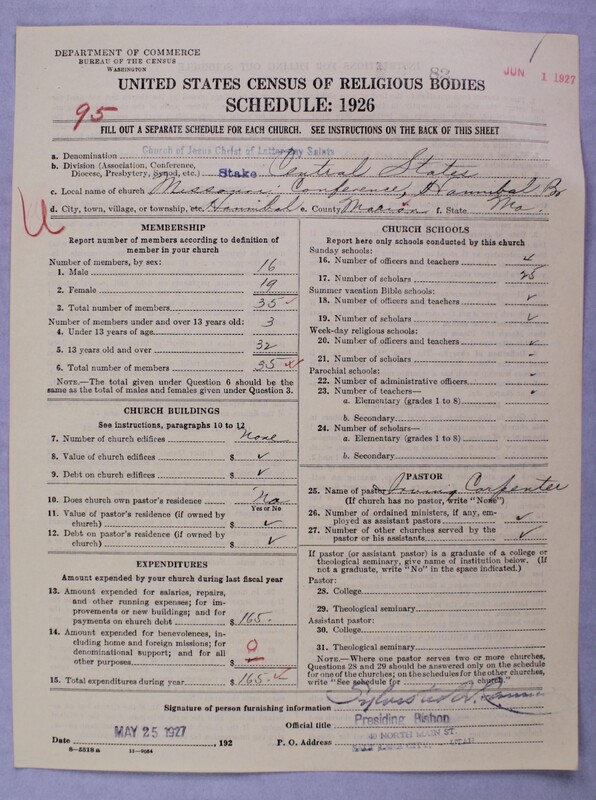 DEPARTMENT OF COMMERCE
BUREAU OF THE CENSUS
WASHINGTON
82
JUN 1 1927
UNITED STATES CENSUS OF RELIGIOUS BODIES
SCHEDULE: 1926
95
FILL OUT A SEPARATE SCHEDULE FOR EACH CHURCH. SEE INSTRUCTIONS ON THE BACK OF THIS SHEET
a. Denomination Church of Jesus Christ of Latter-day Saints
b. Division (Association, Conference, Diocese, Presbytery, Synod, etc.) Stake Central States
c. Local name of church Missouri Conference, Hannibal Br
d. City, town, village, or township, etc. Hannibal e. County Marion f. State Mo.
MEMBERSHIP
Report number of members according to definition of member in your church
Number of members, by sex:
1. Male 16
2. Female 19
3. Total number of members 35
Number of members under and over 13 years old:
4. Under 13 years of age 3
5. 13 years old and over 32
6. Total number of members 35
NOTE.—The total given under Question 6 should be the same as the total of males and females given under Question 3.
CHURCH BUILDINGS
See instructions, paragraphs 10 to 12
7. Number of church edifices None
8. Value of church edifices $ ✓
9. Debt on church edifices $ ✓
10. Does church own pastor's residence No
Yes or No
11. Value of pastor's residence (if owned by church) $ ✓
12. Debt on pastor's residence (if owned by church) $ ✓
EXPENDITURES
Amount expended by your church during last fiscal year
13. Amount expended for salaries, repairs, and other running expenses; for improvements or new buildings; and for payments on church debt $ 165.
14. Amount expended for benevolences, including home and foreign missions; for denominational support; and for all other purposes $ 0
15. Total expenditures during year $ 165.
CHURCH SCHOOLS
Report here only schools conducted by this church
Sunday schools:
16. Number of officers and teachers 4
17. Number of scholars 25
Summer vacation Bible schools:
18. Number of officers and teachers ✓
19. Number of scholars ✓
Week-day religious schools:
20. Number of officers and teachers
21. Number of scholars
Parochial schools:
22. Number of administrative officers
23. Number of teachers—
a. Elementary (grades 1 to 8)
b. Secondary
24. Number of scholars—
a. Elementary (grades 1 to 8)
b. Secondary
PASTOR
25. Name of pastor Irving Carpenter
(If church has no pastor, write "None")
26. Number of ordained ministers, if any, employed as assistant pastors ✓
27. Number of other churches served by the pastor or his assistants ✓
If pastor (or assistant pastor) is a graduate of a college or theological seminary, give name of institution below. (If not a graduate, write "No" in the space indicated.)
Pastor:
28. College
29. Theological seminary
Assistant pastor:
30. College
31. Theological seminary
NOTE.—Where one pastor serves two or more churches, Questions 28 and 29 should be answered only on the schedule for one of the churches; on the schedules for the other churches, write "See schedule for church."
Signature of person furnishing information Sylvester Q. Cannon
Official title Presiding Bishop
Date MAY 25 1927, 192 P. O. Address 40 NORTH MAIN ST.
SALT LAKE CITY, UTAH
8—5518a 11—9564